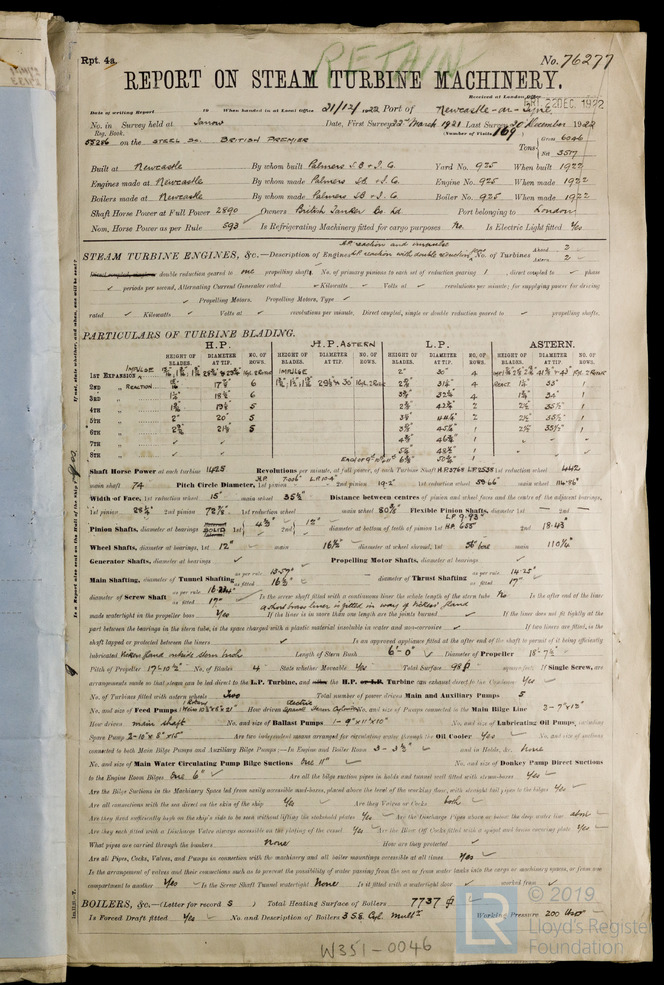 Rpt. 4a.
RETAIN
No. 76277
REPORT ON STEAM TURBINE MACHINERY.
Received at London Office FRI. 22 DEC. 1922
Date of writing Report 19 When handed in at Local Office 21/12/1922 Port of Newcastle-on-Tyne
No. in Reg. Book. Survey held at Jarrow Date, First Survey 22nd March 1921 Last Survey 20 December 1922
(Number of Visits 169)
55286 on the STEEL Sc. BRITISH PREMIER Tons Gross 6046 Net 3517
Built at Newcastle By whom built Palmers S.B. & I. Co. Yard No. 925 When built 1922
Engines made at Newcastle By whom made Palmers S.B. & I. Co. Engine No. 925 When made 1922
Boilers made at Newcastle By whom made Palmers S.B. & I. Co. Boiler No. 925 When made 1922
Shaft Horse Power at Full Power 2890 Owners British Tanker Co. Ld Port belonging to London
Nom. Horse Power as per Rule 593 Is Refrigerating Machinery fitted for cargo purposes No. Is Electric Light fitted Yes
STEAM TURBINE ENGINES, &c.—Description of Engines H.P. reaction and impulse L.P. reaction with double reduction gears No. of Turbines Ahead 2 Astern 2
double reduction geared to one propelling shafts. No. of primary pinions to each set of reduction gearing 1 direct coupled to phase
periods per second, Alternating Current Generator rated Kilowatts Volts at revolutions per minute; for supplying power for driving
Propelling Motors. Propelling Motors, Type
rated Kilowatts Volts at revolutions per minute. Direct coupled, single or double reduction geared to propelling shafts.
PARTICULARS OF TURBINE BLADING.
H.P. H.P. ASTERN L.P. ASTERN.
HEIGHT OF BLADES. DIAMETER AT TIP. NO. OF ROWS. HEIGHT OF BLADES. DIAMETER AT TIP. NO. OF ROWS. HEIGHT OF BLADES. DIAMETER AT TIP. NO. OF ROWS. HEIGHT OF BLADES. DIAMETER AT TIP. NO. OF ROWS.
1ST EXPANSION IMPULSE IMPULSE 2" 30" 4
2ND " REACTION 6 4 REACT. 33" 1
3RD " 6 4 34" 1
4TH " 5 2 1
5TH " 2" 20" 5 2 1
6TH " 5 1 1
7TH " 1
8TH " 1
Shaft Horse Power at each turbine 1425 Revolutions per minute, at full power, of each Turbine Shaft H.P. 3764 L.P. 2535 1st reduction wheel 442
main shaft 74 Pitch Circle Diameter, 1st pinion H.P. 7.006" L.P. 10.4" 2nd pinion 19.2" 1st reduction wheel 59.66" main wheel 114.86"
Width of Face, 1st reduction wheel 15" main wheel 35¾" Distance between centres of pinion and wheel faces and the centre of the adjacent bearings,
1st pinion 28¼" 2nd pinion 1st reduction wheel main wheel Flexible Pinion Shafts, diameter 1st — 2nd —
Pinion Shafts, diameter at bearings 1st 2nd diameter at bottom of teeth of pinion 1st L.P. 9.93" H.P. 6.55" 2nd 18.43"
Wheel Shafts, diameter at bearings, 1st 12" main 16½" diameter at wheel shroud, 1st main 110¼"
Generator Shafts, diameter at bearings Propelling Motor Shafts, diameter at bearings
Main Shafting, diameter of Tunnel Shafting as per rule 15.57" as fitted 16½" diameter of Thrust Shafting as per rule 14.25" as fitted 17"
diameter of Screw Shaft as per rule as fitted 17" Is the screw shaft fitted with a continuous liner the whole length of the stern tube No Is the after end of the liner
a short brass liner is fitted in way of Vickers' gland
made watertight in the propeller boss Yes If the liner is in more than one length are the joints burned If the liner does not fit tightly at the
part between the bearings in the stern tube, is the space charged with a plastic material insoluble in water and non-corrosive If two liners are fitted, is the
shaft lapped or protected between the liners Is an approved appliance fitted at the after end of the shaft to permit of it being efficiently
lubricated Vickers gland outside stern bush Length of Stern Bush 6'-0" Diameter of Propeller 18'-7½"
Pitch of Propeller 17'-10½" No. of Blades 4 State whether Moveable Yes Total Surface 98 square feet. If Single Screw, are
arrangements made so that steam can be led direct to the L.P. Turbine, and the H.P. or L.P. Turbine can exhaust direct to the Condenser Yes
No. of Turbines fitted with astern wheels Two Total number of power driven Main and Auxiliary Pumps 5
No. and size of Feed Pumps How driven No. and size of Pumps connected to the Main Bilge Line 3-7"x12"
How driven main shaft No. and size of Ballast Pumps 1-9"x11"x10" No. and size of Lubricating Oil Pumps, including
Spare Pump 2-10"x8"x15" Are two independent means arranged for circulating water through the Oil Cooler Yes No. and size of suctions
connected to both Main Bilge Pumps and Auxiliary Bilge Pumps:—In Engine and Boiler Room 3-3½" and in Holds, &c. None
No. and size of Main Water Circulating Pump Bilge Suctions One 11" No. and size of Donkey Pump Direct Suctions
to the Engine Room Bilges One 6" Are all the bilge suction pipes in holds and tunnel well fitted with strum-boxes Yes
Are the Bilge Suctions in the Machinery Space led from easily accessible mud-boxes, placed above the level of the working floor, with straight tail pipes to the bilges Yes
Are all connections with the sea direct on the skin of the ship Yes Are they Valves or Cocks both
Are they fixed sufficiently high on the ship's side to be seen without lifting the stokehold plates Yes Are the Discharge Pipes above or below the deep water line above
Are they each fitted with a Discharge Valve always accessible on the plating of the vessel Yes Are the Blow Off Cocks fitted with a spigot and brass covering plate Yes
What pipes are carried through the bunkers None How are they protected
Are all Pipes, Cocks, Valves, and Pumps in connection with the machinery and all boiler mountings accessible at all times Yes
Is the arrangement of valves and their connections such as to prevent the possibility of water passing from the sea or from water tanks into the cargo or machinery spaces, or from one
compartment to another Yes Is the Screw Shaft Tunnel watertight None Is it fitted with a watertight door worked from
BOILERS, &c.—(Letter for record S ) Total Heating Surface of Boilers 7737
Is Forced Draft fitted Yes No. and Description of Boilers 3 S.E. Cyl. Mult. Working Pressure 200 lbs
W351-0046
© 2019
LR
Lloyd's Register
Foundation